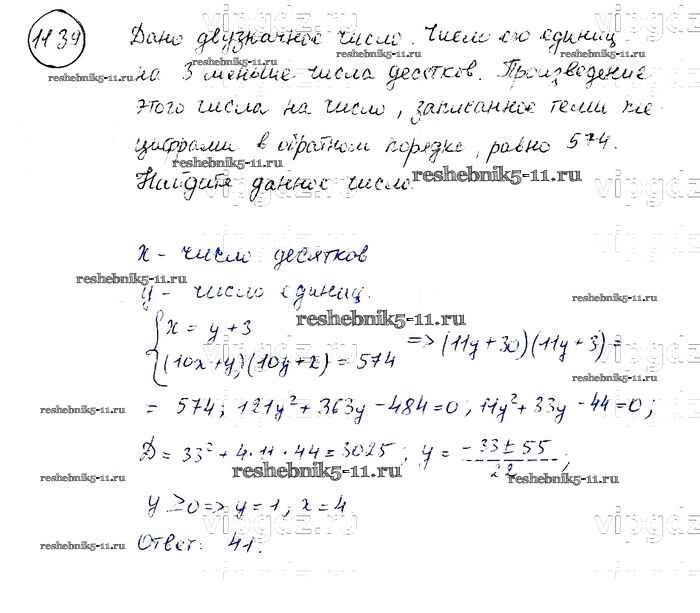 1134
Дано двузначное число. Число его единиц
на 3 меньше числа десятков. Произведение
этого числа на число, записанное теми же
цифрами в обратном порядке, равно 574.
Найдите данное число.
x - число десятков
y - число единиц.
{ x = y + 3
{ (10x+y)(10y+x) = 574 => (11y+30)(11y+3) =
= 574; 121y² + 363y - 484 = 0; 11y² + 33y - 44 = 0;
Д = 33² + 4·11·44 = 3025; y = (-33 ± 55)/22;
y ≥ 0 => y = 1; x = 4
Ответ: 41.
reshebnik5-11.ru
reshebnik5-11.ru
reshebnik5-11.ru
reshebnik5-11.ru
reshebnik5-11.ru
reshebnik5-11.ru
reshebnik5-11.ru
reshebnik5-11.ru
reshebnik5-11.ru
reshebnik5-11.ru
reshebnik5-11.ru
reshebnik5-11.ru
reshebnik5-11.ru
reshebnik5-11.ru
vipgdz
vipgdz
vipgdz
vipgdz
vipgdz
vipgdz